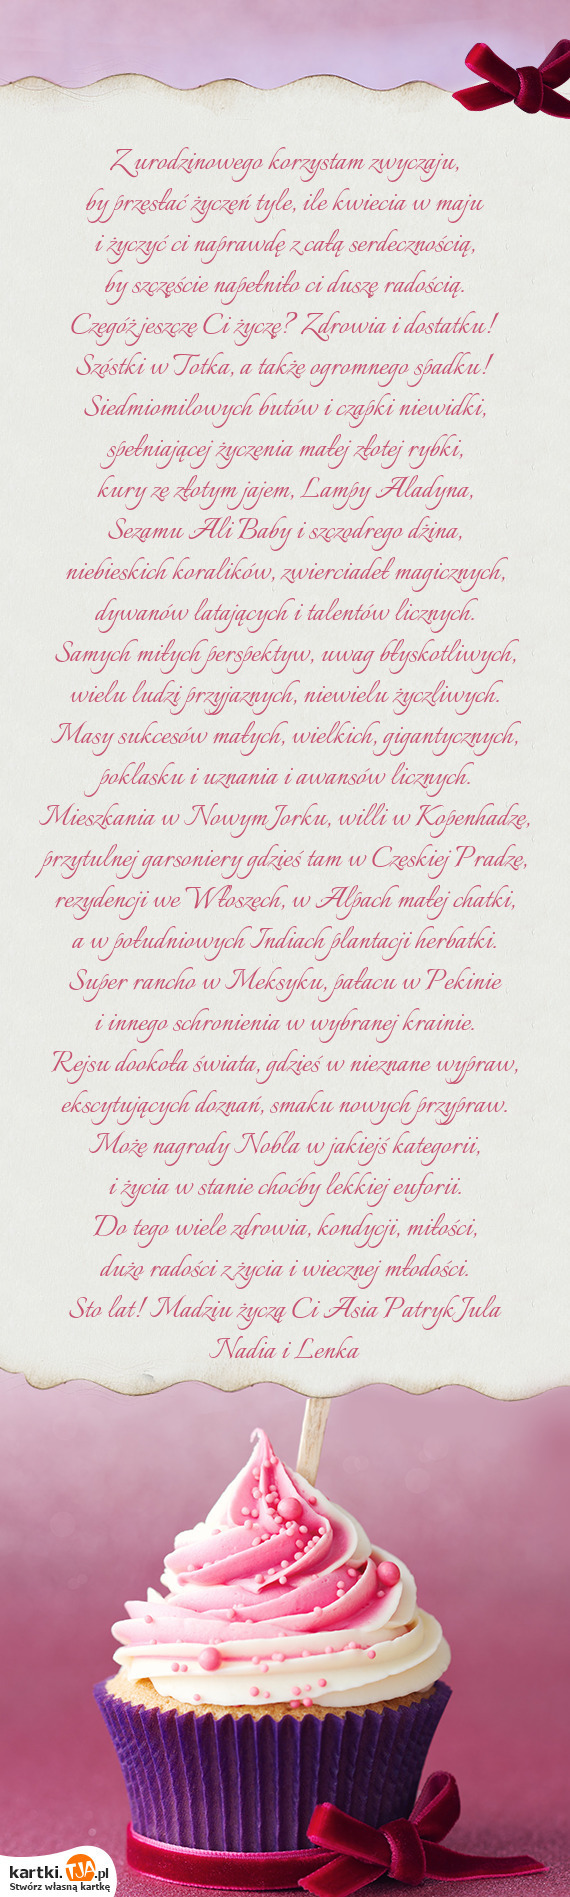 Z urodzinowego korzystam zwyczaju,
by przesłać życzeń tyle, ile kwiecia w maju
i życzyć ci naprawdę z całą serdecznością,
by szczęście napełniło ci duszę radością.
Czegóż jeszcze Ci życzę? Zdrowia i dostatku!
Szóstki w Totka, a także ogromnego spadku!
Siedmiomilowych butów i czapki niewidki,
spełniającej życzenia małej złotej rybki,
kury ze złotym jajem, Lampy Aladyna,
Sezamu Ali Baby i szczodrego dżina,
niebieskich koralików, zwierciadeł magicznych,
dywanów latających i talentów licznych.
Samych miłych perspektyw, uwag błyskotliwych,
wielu ludzi przyjaznych, niewielu życzliwych.
Masy sukcesów małych, wielkich, gigantycznych,
poklasku i uznania i awansów licznych.
Mieszkania w Nowym Jorku, willi w Kopenhadze,
przytulnej garsoniery gdzieś tam w Czeskiej Pradze,
rezydencji we Włoszech, w Alpach małej chatki,
a w południowych Indiach plantacji herbatki.
Super rancho w Meksyku, pałacu w Pekinie
i innego schronienia w wybranej krainie.
Rejsu dookoła świata, gdzieś w nieznane wypraw,
ekscytujących doznań, smaku nowych przypraw.
Może nagrody Nobla w jakiejś kategorii,
i życia w stanie choćby lekkiej euforii.
Do tego wiele zdrowia, kondycji, miłości,
dużo radości z życia i wiecznej młodości.
Sto lat! Madziu życzą Ci Asia Patryk Jula
Nadia i Lenka
kartki.TJA.pl
Stwórz własną kartkę